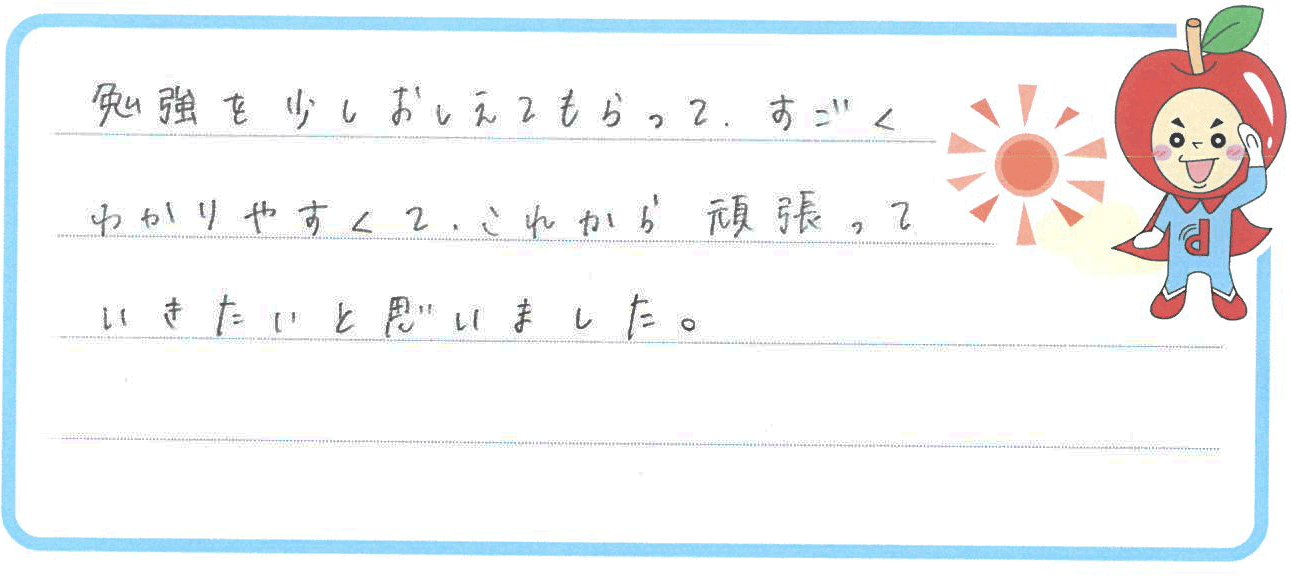 勉強を少しおしえてもらって、すごく
わかりやすくて、これから頑張って
いきたいと思いました。